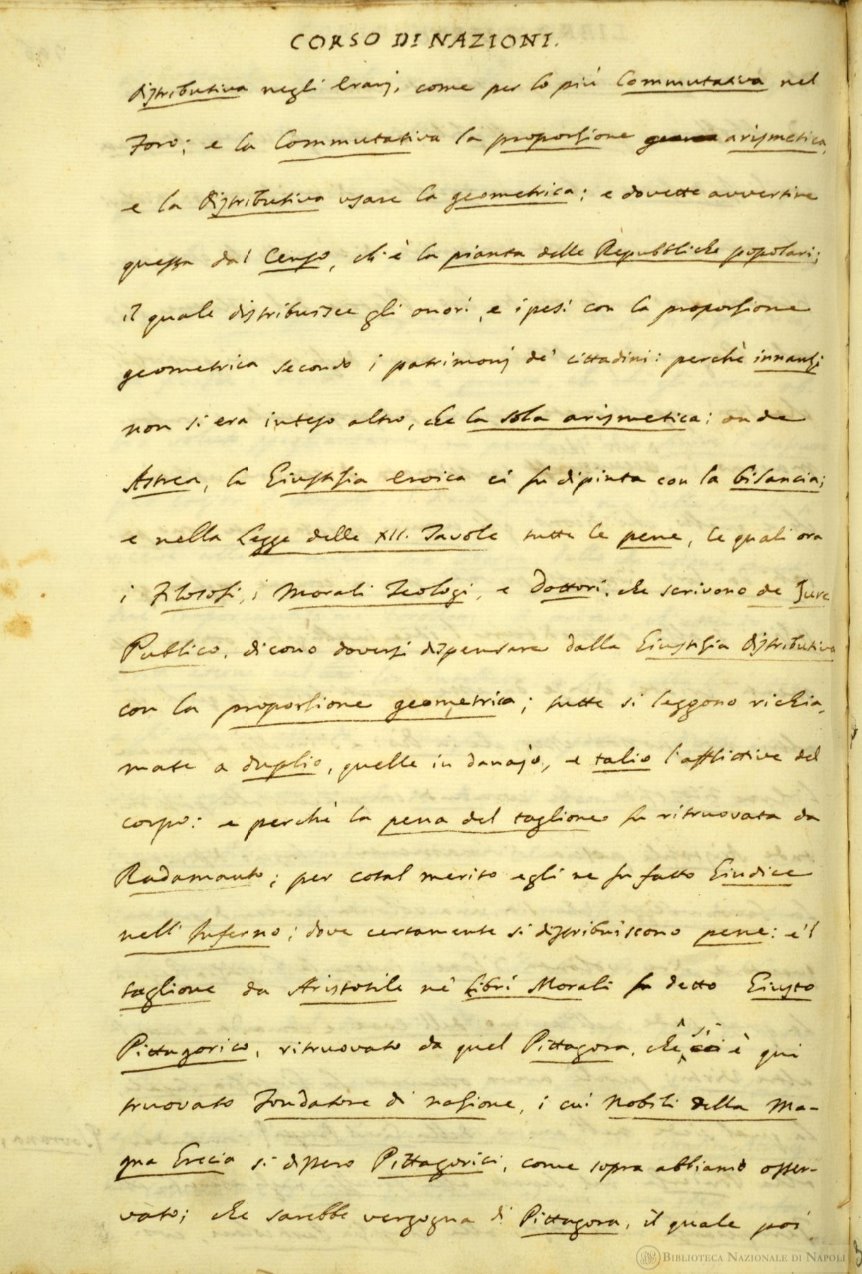 CORSO DI NAZIONI.
distributiva negli Erarj, come per lo più Commutativa nel
Foro; e la Commutativa la proporzione arismetica,
e la distributiva usare la geometrica; e dovette avvertire
questa dal Censo, ch'è la pianta delle Repubbliche popolari;
il quale distribuisce gli onori, e i pesi con la proporzione
geometrica secondo i patrimonj de' cittadini: perchè innanzi
non si era inteso altro, che la sola arismetica; onde
Astrea, la Giustizia eroica ci fu dipinta con la bilancia;
e nella Legge delle XII. Tavole tutte le pene, le quali ora
i Filosofi, i Morali Teologi, e Dottori, che scrivono de Jure
Publico, dicono doversi dispensare dalla Giustizia distributiva
con la proporzione geometrica; tutte si leggono richia-
mate a duplio, quelle in danajo, e talio l'afflittive del
corpo: e perchè la pena del taglione fu ritruovata da
Radamanto; per cotal merito egli ne fu fatto Giudice
nell'Inferno; dove certamente si distribuiscono pene: e 'l
taglione da Aristotile ne' Libri Morali fu detto Giusto
Pittagorico, ritruovato da quel Pittagora, che si è qui
truovato Fondatore di nazione, i cui Nobili della Ma-
gna Grecia si dissero Pittagorici, come sopra abbiamo osser-
vato; che sarebbe vergogna di Pittagora, il quale poi
BIBLIOTECA NAZIONALE DI NAPOLI